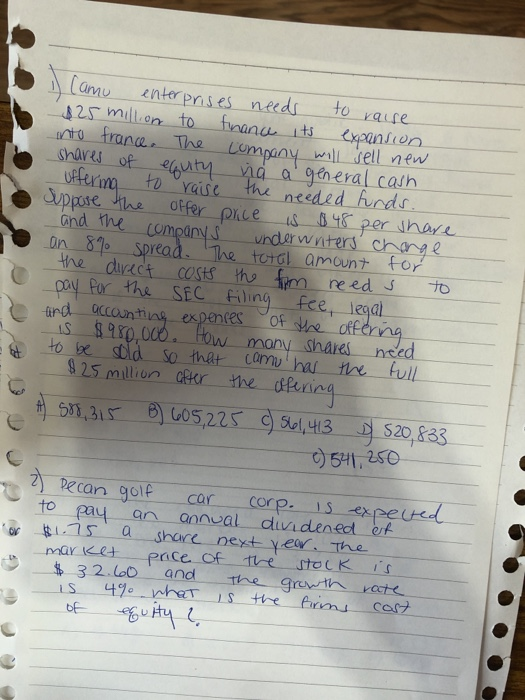 1) Camu enterprises needs to raise
$25 million to finance its expansion
into france. The company will sell new
shares of equity via a general cash
offering to raise the needed funds.
Suppose the offer price is $48 per share
and the company's underwriters charge
an 8% spread. The total amount for
the direct costs the firm needs to
pay for the SEC filing fee, legal
and accounting expences of the offering
is $980,000. How many shares need
to be sold so that camu has the full
$25 million after the offering
A) 588,315 B) 605,225 C) 561,413 D) 520,833
C) 541,250
2) Pecan golf car corp. is expected
to pay an annual dividened of
or $1.75 a share next year. The
market price of the stock is
$32.60 and the growth rate
is 4%. what is the firms cost
of equity?